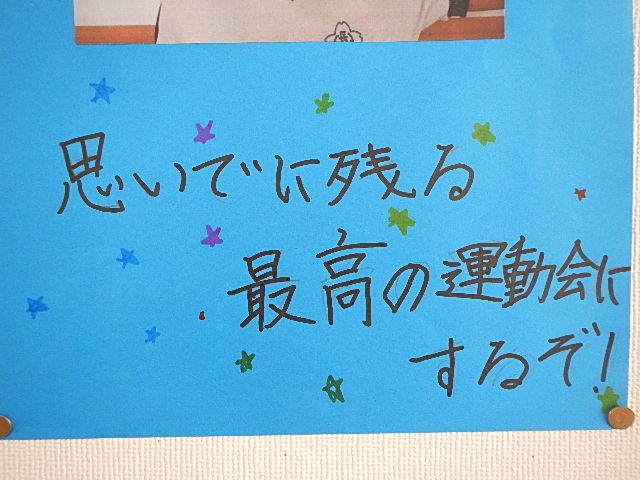 思いでに残る
最高の運動会に
するぞ!